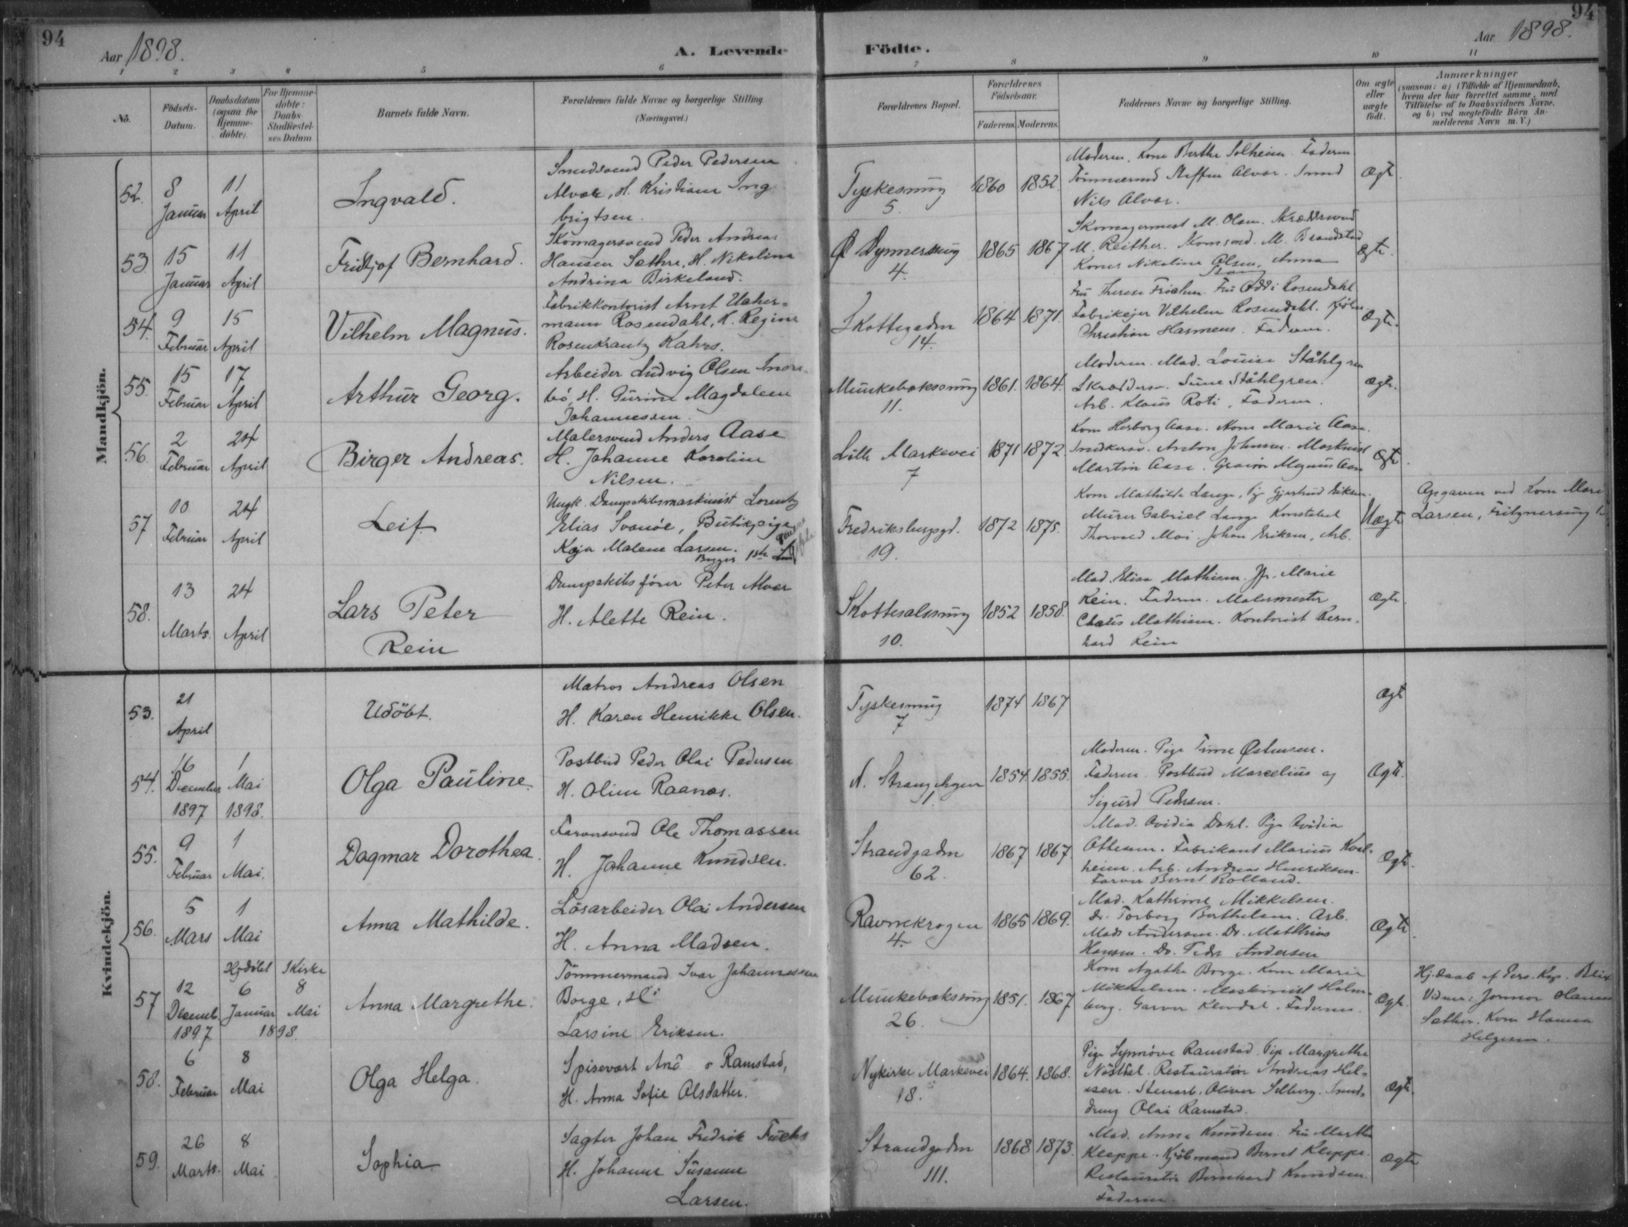 94
94
Aar 1898.
A. Levende Födte.
Aar 1898.
1 2 3 4 5 6 7 8 9 10 11
No.
Födsels-
Datum.
Daabsdatum
(ogsaa for
Hjemme-
döbte).
For Hjemme-
döbte:
Daabs-
Stadfæstel-
ses Datum
Barnets fulde Navn.
Forældrenes fulde Navne og borgerlige Stilling
(Næringsvei.)
Forældrenes Bopæl.
Forældrenes
Födselsaar.
Faderens. Moderens.
Faddernes Navne og borgerlige Stilling.
Om ægte
eller
uægte
födt.
Anmærkninger
(saasom: a) i Tilfælde af Hjemmedaab,
hvem der har forrettet samme, med
Tilföielse af to Daabsvidners Navne,
og b) ved uægtefödte Börn An-
melderens Navn m. V.)
Mandkjön.
52.
8
Januar
11
April
Ingvald.
Smedsvend Peder Pedersen
Alvær, H. Kristiane Ing
brigtsen.
Tyskesmug
5
1860 1852.
Moderen. Kone Berthe Solheim. Faderen
Tömmermd Steffen Alvær. Smed
Nils Alvær.
Ægt.
53
15
Januar
11
April
Fridtjof Bernhard.
Skomagersvend Peder Andreas
Hansen Sæthre, H. Nikoline
Andrine Birkeland.
4.
1865 1867
Skomagermest M. Olsen. Skræddersvend
M. Reither. Komsmd. M. Brandstad
Koner Nikoline Olsen, Anna
Ægte.
54.
9
Februar
15
April
Vilhelm Magnus.
Fabrikkontorist Arnt
mann Rosendahl, H. Regine
Rosenkrantz Kahrs.
Skottegaden
14.
1864 1871.
Fru Therese Frœlen. Fru Rosendahl
Fabrikejer Vilhelm Rosendahl.
Christian Harmens. Faderen.
Ægte.
55.
15
Februar
17
April
Arthur Georg.
Arbeider Ludvig Olsen Indre-
bö, H. Gurine Magdalene
Johannessen.
Munkebæksmug
11.
1861. 1864.
Moderen. Mad. Louise Ståhlgren
Skræddersv. Sune Ståhlgren.
Arb. Klaus Roti, Faderen.
Ægte.
56.
2
Februar
24
April
Birger Andreas.
Malersvend Anders Aase
H. Johanne Karoline
Nilsen.
Lille Markevei
7
1871 1872.
Kone Herborg Aase. Kone Marie Aase.
Anton Johnsen. Maskinist
Martin Aase. Magnus Aase
Ægt.
57
10
Februar
24
April
Leif.
Ungk. Dampskibsmaskinist Lorentz
Elias Svanöe, Butikpige
Kaja Malene Larsen.
Fredriksbergsgd.
19.
1872 1875.
Kone Mathilde Lange, Pg Gjertrud Eriksen.
Murer Gabriel Lange Konstabel
Thorvald Moi Johan Eriksen, Arb.
Uægte
Opgaven ved Kone Marie
Larsen,
58.
13
Marts.
24
April
Lars Peter
Rein
Dampskibsförer Peter Alvær
H. Alette Rein.
Skottesalssmug
10.
1852 1858.
Mad. Elisa Mathisen. Jfr. Marie
Rein. Faderen. Malermester
Mathisen. Kontorist Bern-
hard Rein
Ægte
Kvindekjön.
53.
21
April
Udöbt.
Matros Andreas Olsen
H. Karen Henrikke Olsen.
Tyskesmug
7
1874 1867
Ægt
54.
16
December
1897
1
Mai
1898.
Olga Pauline.
Postbud Peder Olai Pedersen
H. Oline Raanæs.
1
1854. 1855.
Moderen. Pige Östensen.
Faderen. Postbud Marcelius og
Sigurd Pedersen.
Ægte.
55.
9
Februar
1
Mai.
Dagmar Dorothea.
Farversvend Ole Thomassen
H. Johanne Knudsen.
Strandgaden
62.
1867 1867
Mad. Ovidia Dahl. Pige Ovidia
Ottesen. Fabrikant Marius Kval-
heim. Arb. Andreas Henriksen.
Farver Bernt Rolland.
Ægte.
56.
5
Mars
1
Mai
Anna Mathilde.
Lösarbeider Olai Andersen
H. Anna Madsen.
Ravnekrogen
4.
1865 1869.
Mad. Kathrine Mikkelsen.
Do. Torborg Berthelsen. Arb.
Mads Andersen. Do. Matthias
Hansen. Do. Peder Andersen
Ægte.
57
12
Decemb.
1897
Hj.döbt
6
Januar
i Kirke
8
Mai
1898.
Anna Margrethe.
Tömmermand Ivar Johannessen
Borge, H.
Larsine Eriksen.
Munkebæksmug
26.
1851. 1867
Kone Agathe Borge. Kone Marie
Mikkelsen. Maskinist Holm-
berg. Garver Klendal. Faderen.
Ægte
Hj.daab af Pers. Kap. Blix
Vidner: Jormor Hanna
Sæther. Kone Hanna
Helgesen.
58.
6
Februar
8
Mai
Olga Helga.
Spisevært Ramstad,
H. Anna Sofie Olsdatter.
Nykirke Markevei
18.
1864. 1868.
Pige Synnöve Ramstad. Pige Margrethe
Restauratör Andreas Hel-
Stuert. Oliver Solberg. Smed-
dreng Olai Ramstad.
Ægte.
59.
26
Marts.
8
Mai
Sophia
Bagter Johan Fredrik Fuchs
H. Johanne Susanne
Larsen.
Strandgaden
111.
1868 1873.
Mad. Anna Knudsen. Fru Marthe
Kleppe. Kjöbmand Bernt Kleppe.
Restauratör Bernhard Knudsen
Faderen.
Ægte